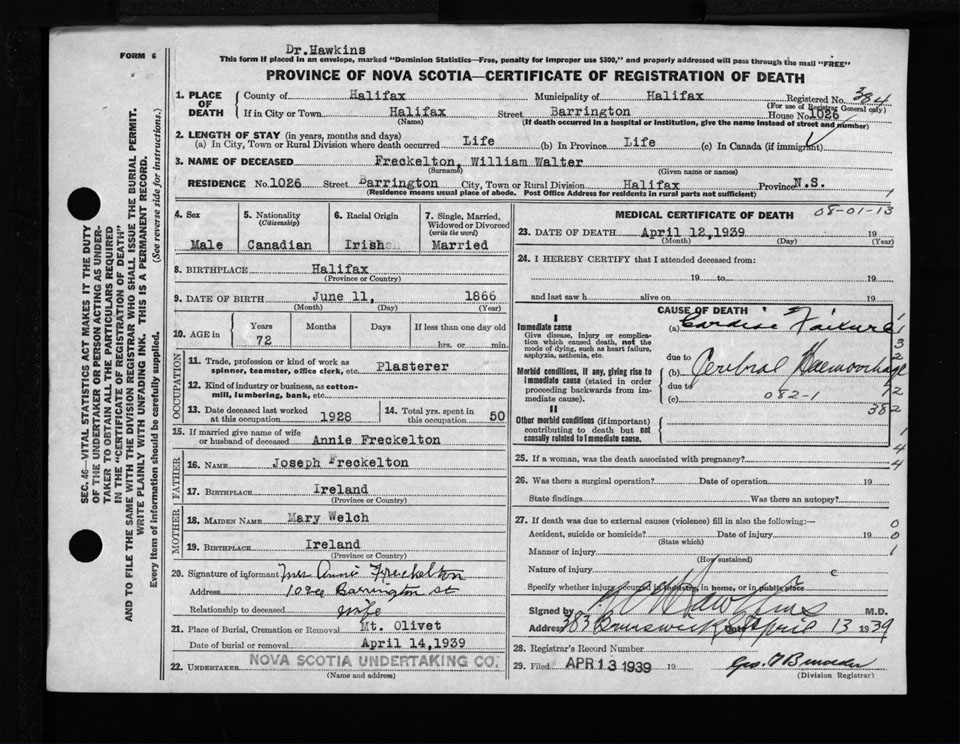 FORM 6
Dr.Hawkins
This form if placed in an envelope, marked "Dominion Statistics—Free, penalty for improper use $300," and properly addressed will pass through the mail "FREE"
PROVINCE OF NOVA SCOTIA—CERTIFICATE OF REGISTRATION OF DEATH
1. PLACE OF DEATH
County of Halifax Municipality of Halifax Registered No. 384
(For use of Registrar General only)
If in City or Town Halifax Street Barrington House No. 1026
(Name) (If death occurred in a hospital or institution, give the name instead of street and number)
2. LENGTH OF STAY (in years, months and days)
(a) In City, Town or Rural Division where death occurred Life (b) In Province Life (c) In Canada (if immigrant)
3. NAME OF DECEASED Freckelton, William Walter
(Surname) (Given name or names)
RESIDENCE No. 1026 Street Barrington City, Town or Rural Division Halifax Province N.S.
(Residence means usual place of abode. Post Office Address for residents in rural parts not sufficient)
4. Sex
Male
5. Nationality
(Citizenship)
Canadian
6. Racial Origin
Irish
7. Single, Married, Widowed or Divorced
(write the word)
Married
8. BIRTHPLACE Halifax
(Province or Country)
9. DATE OF BIRTH June 11, 1866
(Month) (Day) (Year)
10. AGE in
Years Months Days If less than one day old
72 hrs. or min.
OCCUPATION
11. Trade, profession or kind of work as spinner, teamster, office clerk, etc. Plasterer
12. Kind of industry or business, as cotton-mill, lumbering, bank, etc.
13. Date deceased last worked at this occupation 1928
14. Total yrs. spent in this occupation 50
15. If married give name of wife or husband of deceased Annie Freckelton
FATHER
16. NAME Joseph Freckelton
17. BIRTHPLACE Ireland
(Province or Country)
MOTHER
18. MAIDEN NAME Mary Welch
19. BIRTHPLACE Ireland
(Province or Country)
20. Signature of informant Mrs Annie Freckelton
Address 1026 Barrington st
Relationship to deceased wife
21. Place of Burial, Cremation or Removal Mt. Olivet
Date of burial or removal April 14,1939
22. UNDERTAKER NOVA SCOTIA UNDERTAKING CO.
(Name and address)
MEDICAL CERTIFICATE OF DEATH 08-01-13
23. DATE OF DEATH April 12,1939 19
(Month) (Day) (Year)
24. I HEREBY CERTIFY that I attended deceased from:
19 to 19
and last saw h alive on 19
CAUSE OF DEATH
I
Immediate cause
Give disease, injury or complication which caused death, not the mode of dying, such as heart failure, asphyxia, asthenia, etc.
(a) Cardiac Failure
due to
Morbid conditions, if any, giving rise to immediate cause (stated in order proceeding backwards from immediate cause).
(b) Cerebral Haemorrhage
due to
(c) 082-1
382
II
Other morbid conditions (if important) contributing to death but not causally related to immediate cause.
25. If a woman, was the death associated with pregnancy?
26. Was there a surgical operation? Date of operation 19
State findings Was there an autopsy?
27. If death was due to external causes (violence) fill in also the following:—
Accident, suicide or homicide? Date of injury 19
(State which)
Manner of injury
(How sustained)
Nature of injury
Specify whether injury occurred in industry, in home, or in public place
Signed by Hawkins M.D.
Address 383 Brunswick St April 13 1939
28. Registrar's Record Number
29. Filed APR 13 1939 19
(Division Registrar)
SEC. 46—VITAL STATISTICS ACT MAKES IT THE DUTY
OF THE UNDERTAKER OR PERSON ACTING AS UNDER-
TAKER TO OBTAIN ALL THE PARTICULARS REQUIRED
IN THE "CERTIFICATE OF REGISTRATION OF DEATH"
AND TO FILE THE SAME WITH THE DIVISION REGISTRAR WHO SHALL ISSUE THE BURIAL PERMIT.
WRITE PLAINLY WITH UNFADING INK. THIS IS A PERMANENT RECORD.
Every item of information should be carefully supplied. (See reverse side for instructions.)